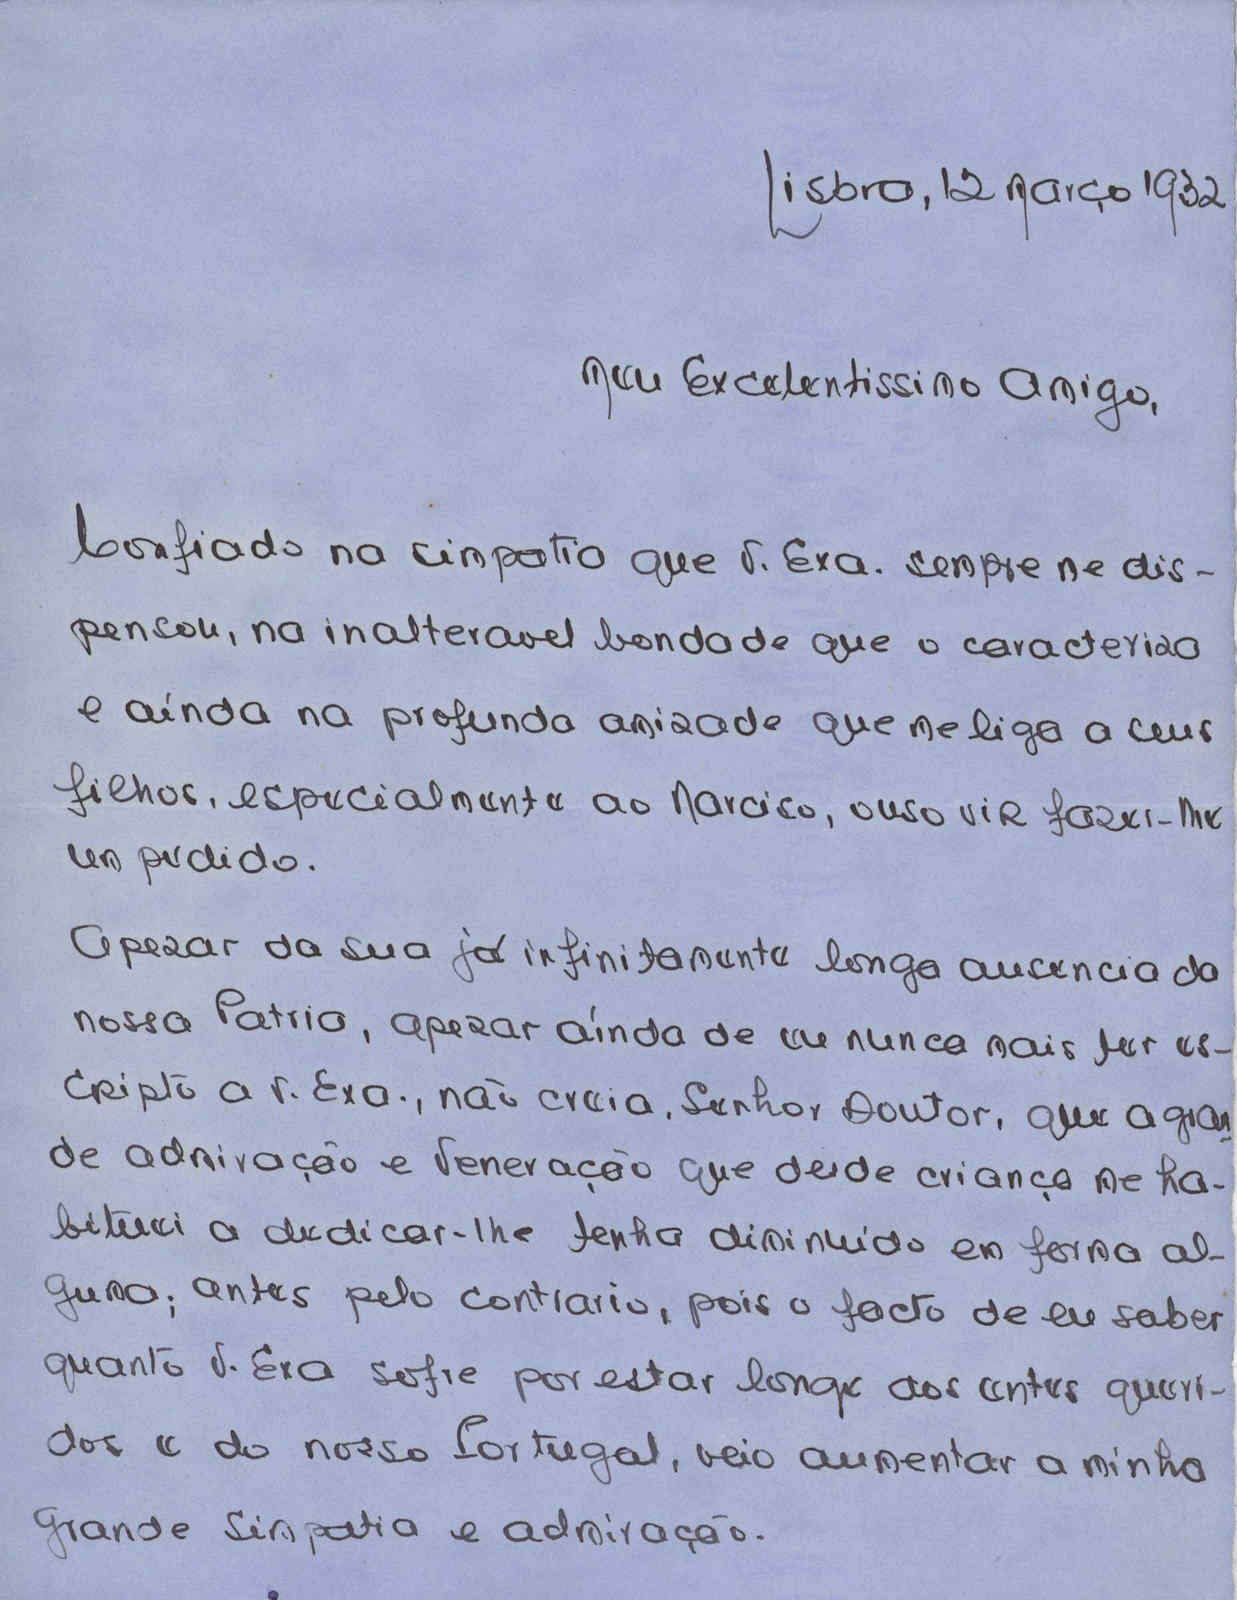 Lisboa, 12 Março 1932
Meu Excelentissimo Amigo,
Confiado na simpatia que V. Exa. sempre me dis-
pensou, na inalteravel bondade que o caracteriza
e aínda na profunda amizade que me liga a seus
filhos, especialmente ao Narciso, ouso vir fazer-lhe
um pedido.
Apezar da sua já infinitamente longa ausencia da
nossa Patria, apezar aínda de eu nunca mais ter es-
cripto a V. Exa., não creia, Senhor Doutor, que a gran
de admiração e veneração que desde criança me ha-
bituei a dedicar-lhe tenha diminuido em forma al-
guma; antes pelo contrario, pois o facto de eu saber
quanto V. Exa sofre por estar longe dos entes queri-
dos e do nosso Portugal, veio aumentar a minha
grande simpatia e admiração.